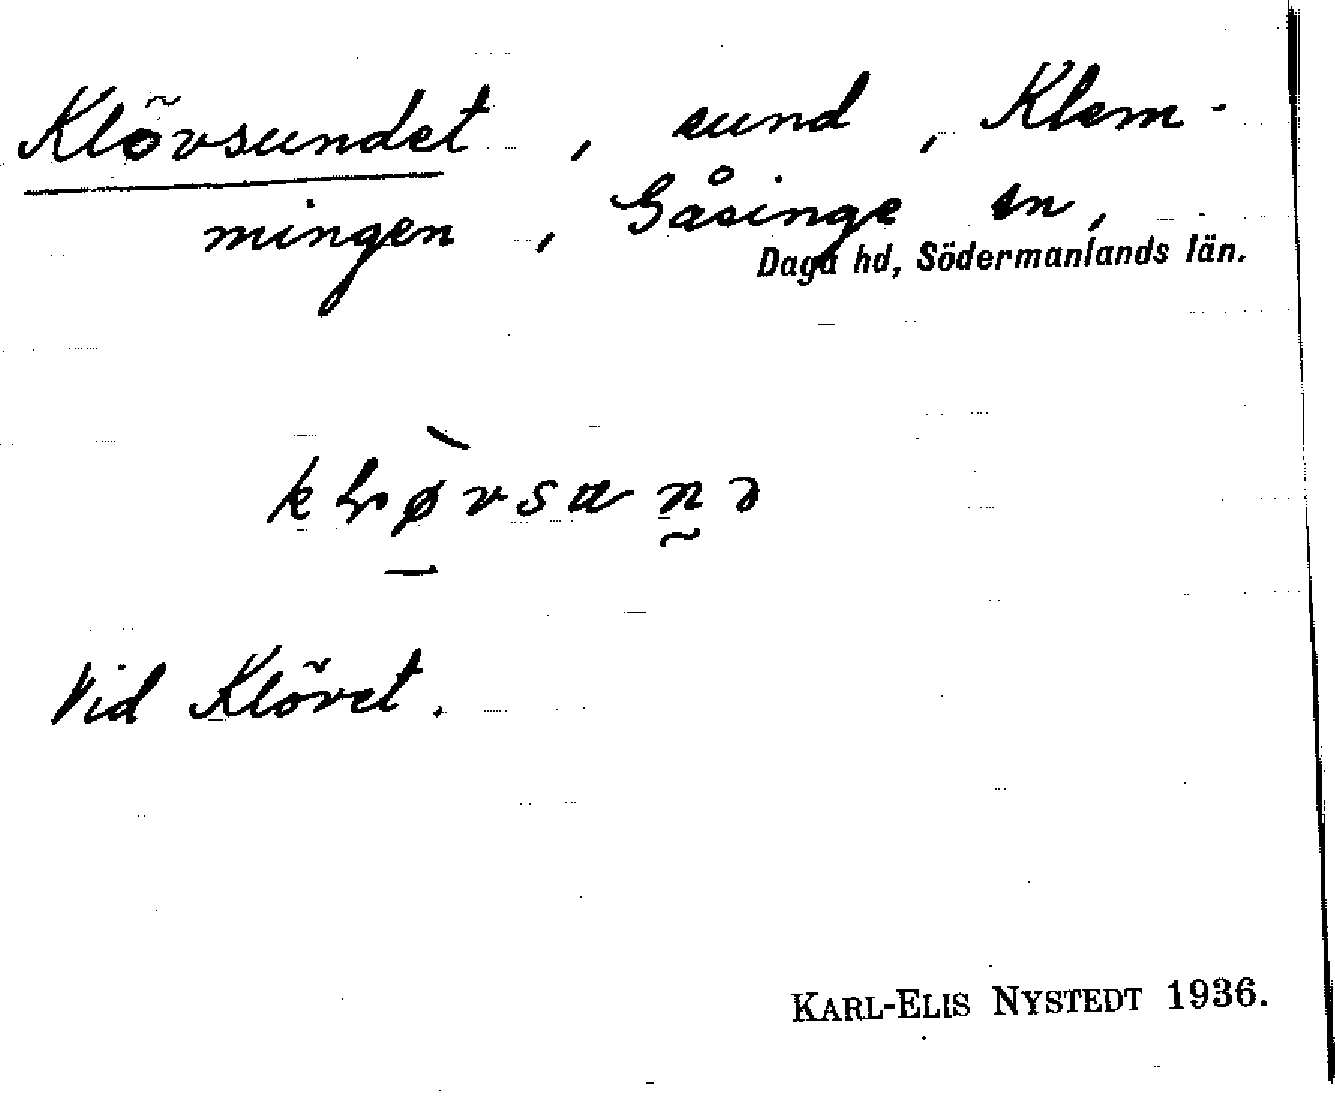 Klövsundet, sund, Klem-
mingen, Gåsinge sn,
Daga hd, Södermanlands län.
Vid Klövet.
KARL-ELIS NYSTEDT 1936.